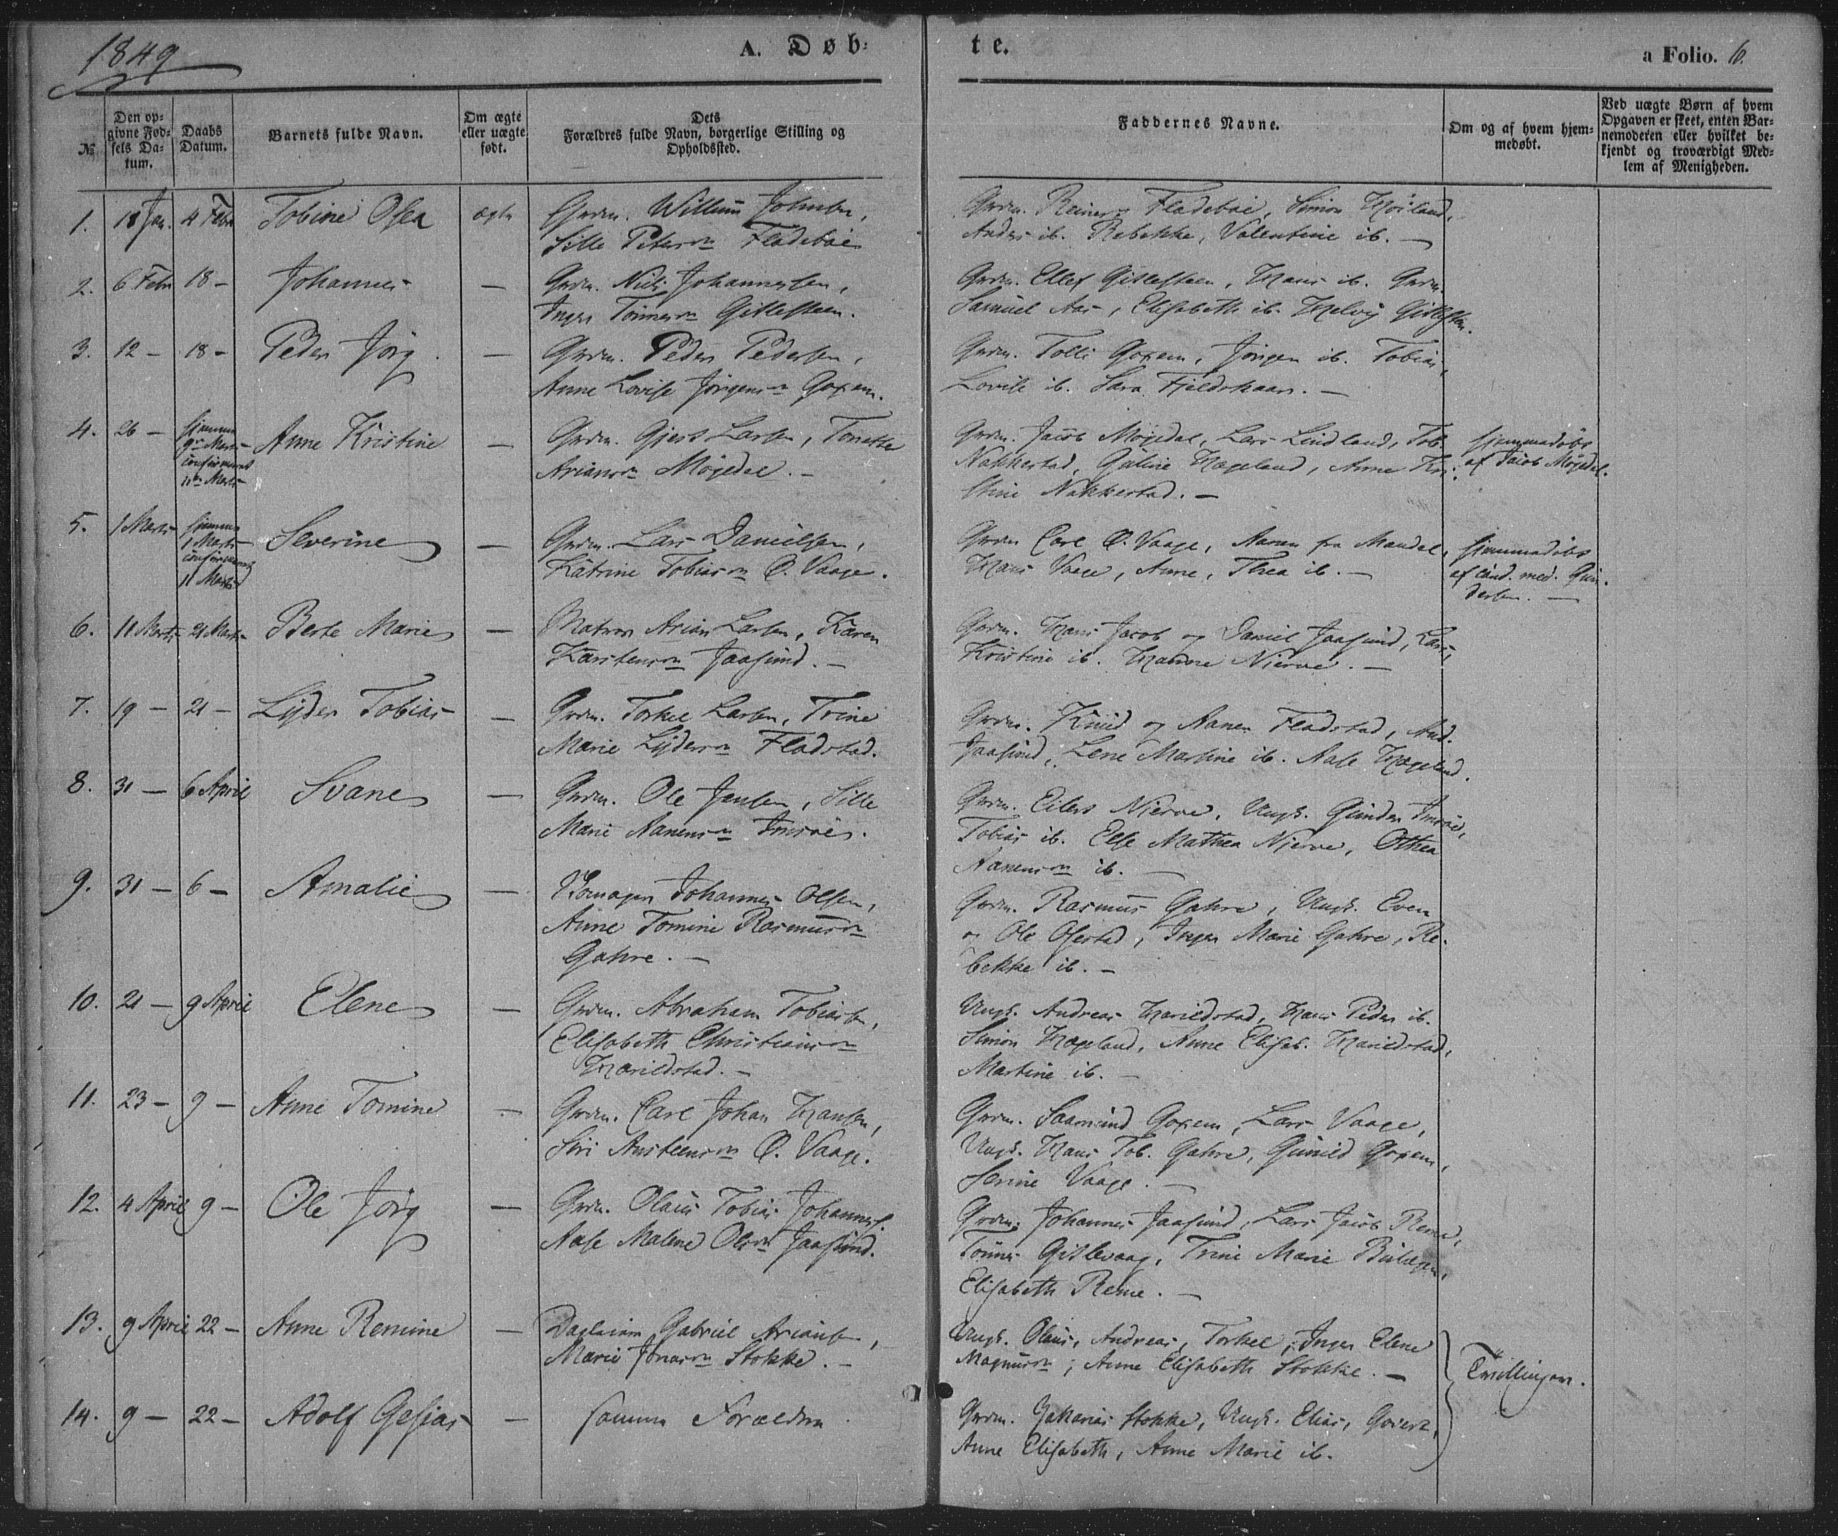 1849
A. Døb-
te.
a Folio. 6.
№
Den op-
givne Fød-
sels Da-
tum.
Daabs
Datum.
Barnets fulde Navn.
Om ægte
eller uægte
født.
Dets
Forældres fulde Navn, borgerlige Stilling og
Opholdssted.
Faddernes Navne.
Om og af hvem hjem-
medøbt.
Ved uægte Børn af hvem
Opgaven er skeet, enten Bar-
nemoderen eller hvilket be-
kjendt og troværdigt Med-
lem af Menigheden.
1. 18 Jan. 4 Febr Tobine Osea ægte Grdm. Willum Johnsen,
Sille Petersn Fladebøe
Grdm. Reiner Fladebøe, Simon Høiland,
Anders ib. Rebekke, Valentine ib. —
2. 6 Febr 18 — Johannes — Grdm. Niels Johannesen,
Inger Tønnesn Gitlesteen.
Grdm. Ellef Gitlesteen, Hans ib. Grdm.
Samuel Aas, Elisabeth ib. Helvig Gitlesteen.
3. 12 — 18 — Peder Jørg — Grdm. Peder Pedersen,
Anne Lovise Jørgensn Goxem.
Grdm. Tolli Goxem, Jørgen ib. Tobias,
Lovise ib. Sara Fjeldskaar. —
4. 26 — hjemme
9de Marts
confirmeret
11te Marts
Anne Kristine — Grdm. Gjert Larsen, Tonette
Ariansn Møgedal. —
Grdm. Jacob Møgedal, Lars Lindland, Tob.
Nakkestad, Guline Hægeland, Anne Kri-
stine Nakkestad. —
hjemmedøbt
af Jacob Møgedal.
5. 1 Marts hjemme
1 Marts
confirmeret
11 Marts
Severine — Grdm. Lars Danielsen,
Katrine Tobiasn Ø. Vaage.
Grdm Carl Ø. Vaage, Aanen fra Mandal,
Hans Vaage, Anne, Thea ib. —
hjemmedøbt
af cand. med. Gun-
dersen. —
6. 11 Marts 21 Marts Berte Marie — Matros Arian Larsen, Karen
Karstensn Jaasund. —
Grdm. Hans Jacob og Daniel Jaasund, Lars,
Kristine ib. Nierve. —
7. 19 — 21 — Lyder Tobias — Grdm. Torkel Larsen, Trine
Marie Lydersn Fladstad.
Grdm. Knud og Aanen Fladstad, And.
Jaasund, Lene Martine ib. Aase Hægeland.
8. 31 — 6 April Svane — Grdm. Ole Jensen, Sille
Marie Aanensn Imsøe.
Grdm. Eilert Nierve, Ungk. Gunder Imsøe,
Tobias ib. Else Mathea Nierve, Othea
Aanensn ib. —
9. 31 — 6 — Amalie — Johannes Olsen,
Anne Tomine Rasmusn
Gahre. —
Grdm. Rasmus Gahre, Ungk. Even
og Ole Ofestad, Inger Marie Gahre, Re-
bekke ib. —
10. 21 — 9 April Elene — Grdm. Abraham Tobiasen,
Elisabeth Christiansn
Harildstad. —
Ungk. Andreas Harildstad, Hans Peder ib.
Simon Hægeland, Anne Elisab. Harildstad,
Martine ib. —
11. 23 — 9 — Anne Tomine — Grdm. Carl Johan Hansen,
Siri Austeensn Ø. Vaage.
Grdm. Saamund Goxem, Lars Vaage,
Ungk. Hans Tob. Gahre, Gunild Goxem,
Serine Vaage. —
12. 4 April 9 — Ole Jørg — Grdm. Olaus Tobias Johannes.
Aase Malene Olsn Jaasund.
Grdm. Johannes Jaasund, Lars Jacob Reme,
Tønnes Gitlevaag, Trine Marie
Elisabeth Reme. —
13. 9 April 22 — Anne Remine — Daglejem Gabriel Ariansen,
Marie Jonasn Stokke. —
Ungk. Olaus, Andreas, Torkel; Inger Elene
Magnusn; Anne Elisabeth Stokke. —
Tvillinger.
14. 9 — 22 — Adolf Gesias — samme Forældre
Grdm. Zakarias Stokke, Ungk. Elias, Govert,
Anne Elisabeth, Anne Marie ib.